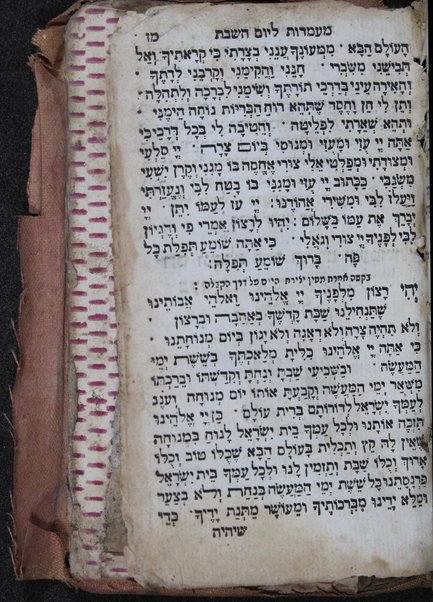 מעמדות ליום השבת
מו
העולם הבא ׃ ממעונך ענני בצרתי כי קראתיך ואל
תבישני משברי ׃ חנני והקימני וקרבני לדתך
והאירה עיני בדרכי תורתיך ושימני לברכה ולתהלה ׃
ותן לי חן וחסד שתהא רוח הבריות נוחה הימני ׃
ותהא שארתי לפליטה ׃ והטיבה לי בכל דרכי כי
אתה יי עזי ומעזי ומנוסי ביום צרה ׃ יי סלעי
ומצודתי ומפלטי אלי צורי אחסה בו מגני וקרן ישעי
משגבי ׃ ככתוב יי עזי ומגני בו בטח לבי ונעזרתי
ויעלז לבי ומשירי אהודנו ׃ יי עז לעמו יתן יי
יברך את עמו בשלום ׃ יהיו לרצון אמרי פי והגיון
לבי לפניך יי צורי וגואלי ׃ כי אתה שומע תפלת כל
פה ׃ ברוך שומע תפלה ׃
בקשה אחרת מענין יחידית
יהי רצון מלפניך יי אלהינו ואלהי אבותינו
שתנחילנו שבת קדשך באהבה וברצון
ולא תהיה צרה ולא ראגה ולא יגון ביום מנוחתנו ׃
כי אתה יי אלהינו כלית מלאכתך בששת ימי
המעשה ׃ ובשביעי שבת ונחת וקדשתו וברכתו
משאר ימי המעשה וקבעת אותו יום מנוחה וענג
לעמך ישראל לדורותם ברית עולם ׃ כן יי אלהינו
תזכה אותנו ולכל עמך בית ישראל לנוח במנוחה
שאין לה קץ ותכלית בעולם הבא שכלו טוב וכלו
ארוך וכלו שבת ותזמין לנו ולכל עמך בית ישראל
פרנסתנו כל ששת ימי המעשה בנחת ולא בצער
ומלא ידינו מברכותיך ומעושר מתנת ידיך ׃ כדי
שיהיה